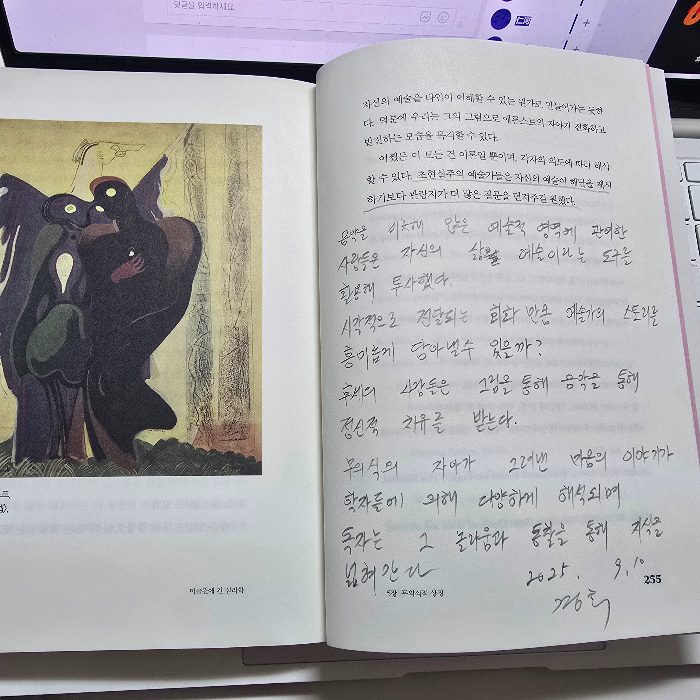 댓글을 입력하세요.
미술관에 간 심리학
자신의 예술을 타인이 이해할 수 있는 뭔가로 만들어가는 듯하
다. 덕분에 우리는 그의 그림으로 에른스트의 자아가 진화하고
발전하는 모습을 목격할 수 있다.
어쨌든 이 모든 건 이론일 뿐이며, 각자의 의도에 따라 해석
할 수 있다. 초현실주의 예술가들은 자신의 예술이 해답을 제시
하기보다 반람자가 더 많은 질문을 던져주길 원했다.
음악을 비롯해 많은 예술적 영역에 관여한
사람들은 자신의 삶을 예술이라는 도구를
활용해 투사했다.
시각적으로 전달되는 회화만큼 예술가의 스토리를
흥미롭게 담아낼수 있을까?
후세의 사람들은 그림을 통해 음악을 통해
정신적 치유를 받는다.
무의식의 자아가 그려낸 마음의 이야기가
학자들에 의해 다양하게 해석되며
독자는 그 놀라움과 통찰을 통해 지식을
넓혀간다
2025. 9. 10
255
5장 무의식적 상징